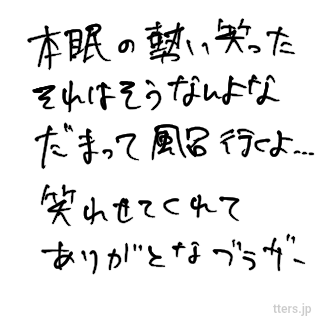 本眠の勢い笑った
それはそうなんよな
だまって風呂行くよ...
笑わせてくれて
ありがとなブラザー
tters.jp